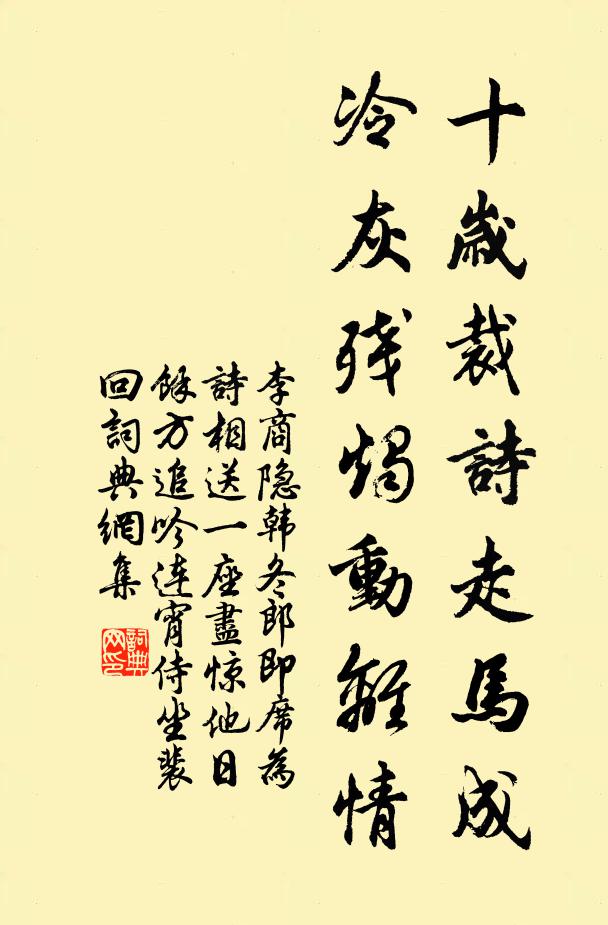 十歲裁詩走馬成
冷灰残燭動離情
李商隐韩冬郎即席為
詩相送一座盡惊他日
餘方追吟連宵侍坐裴
回詞典網集
詞典网印